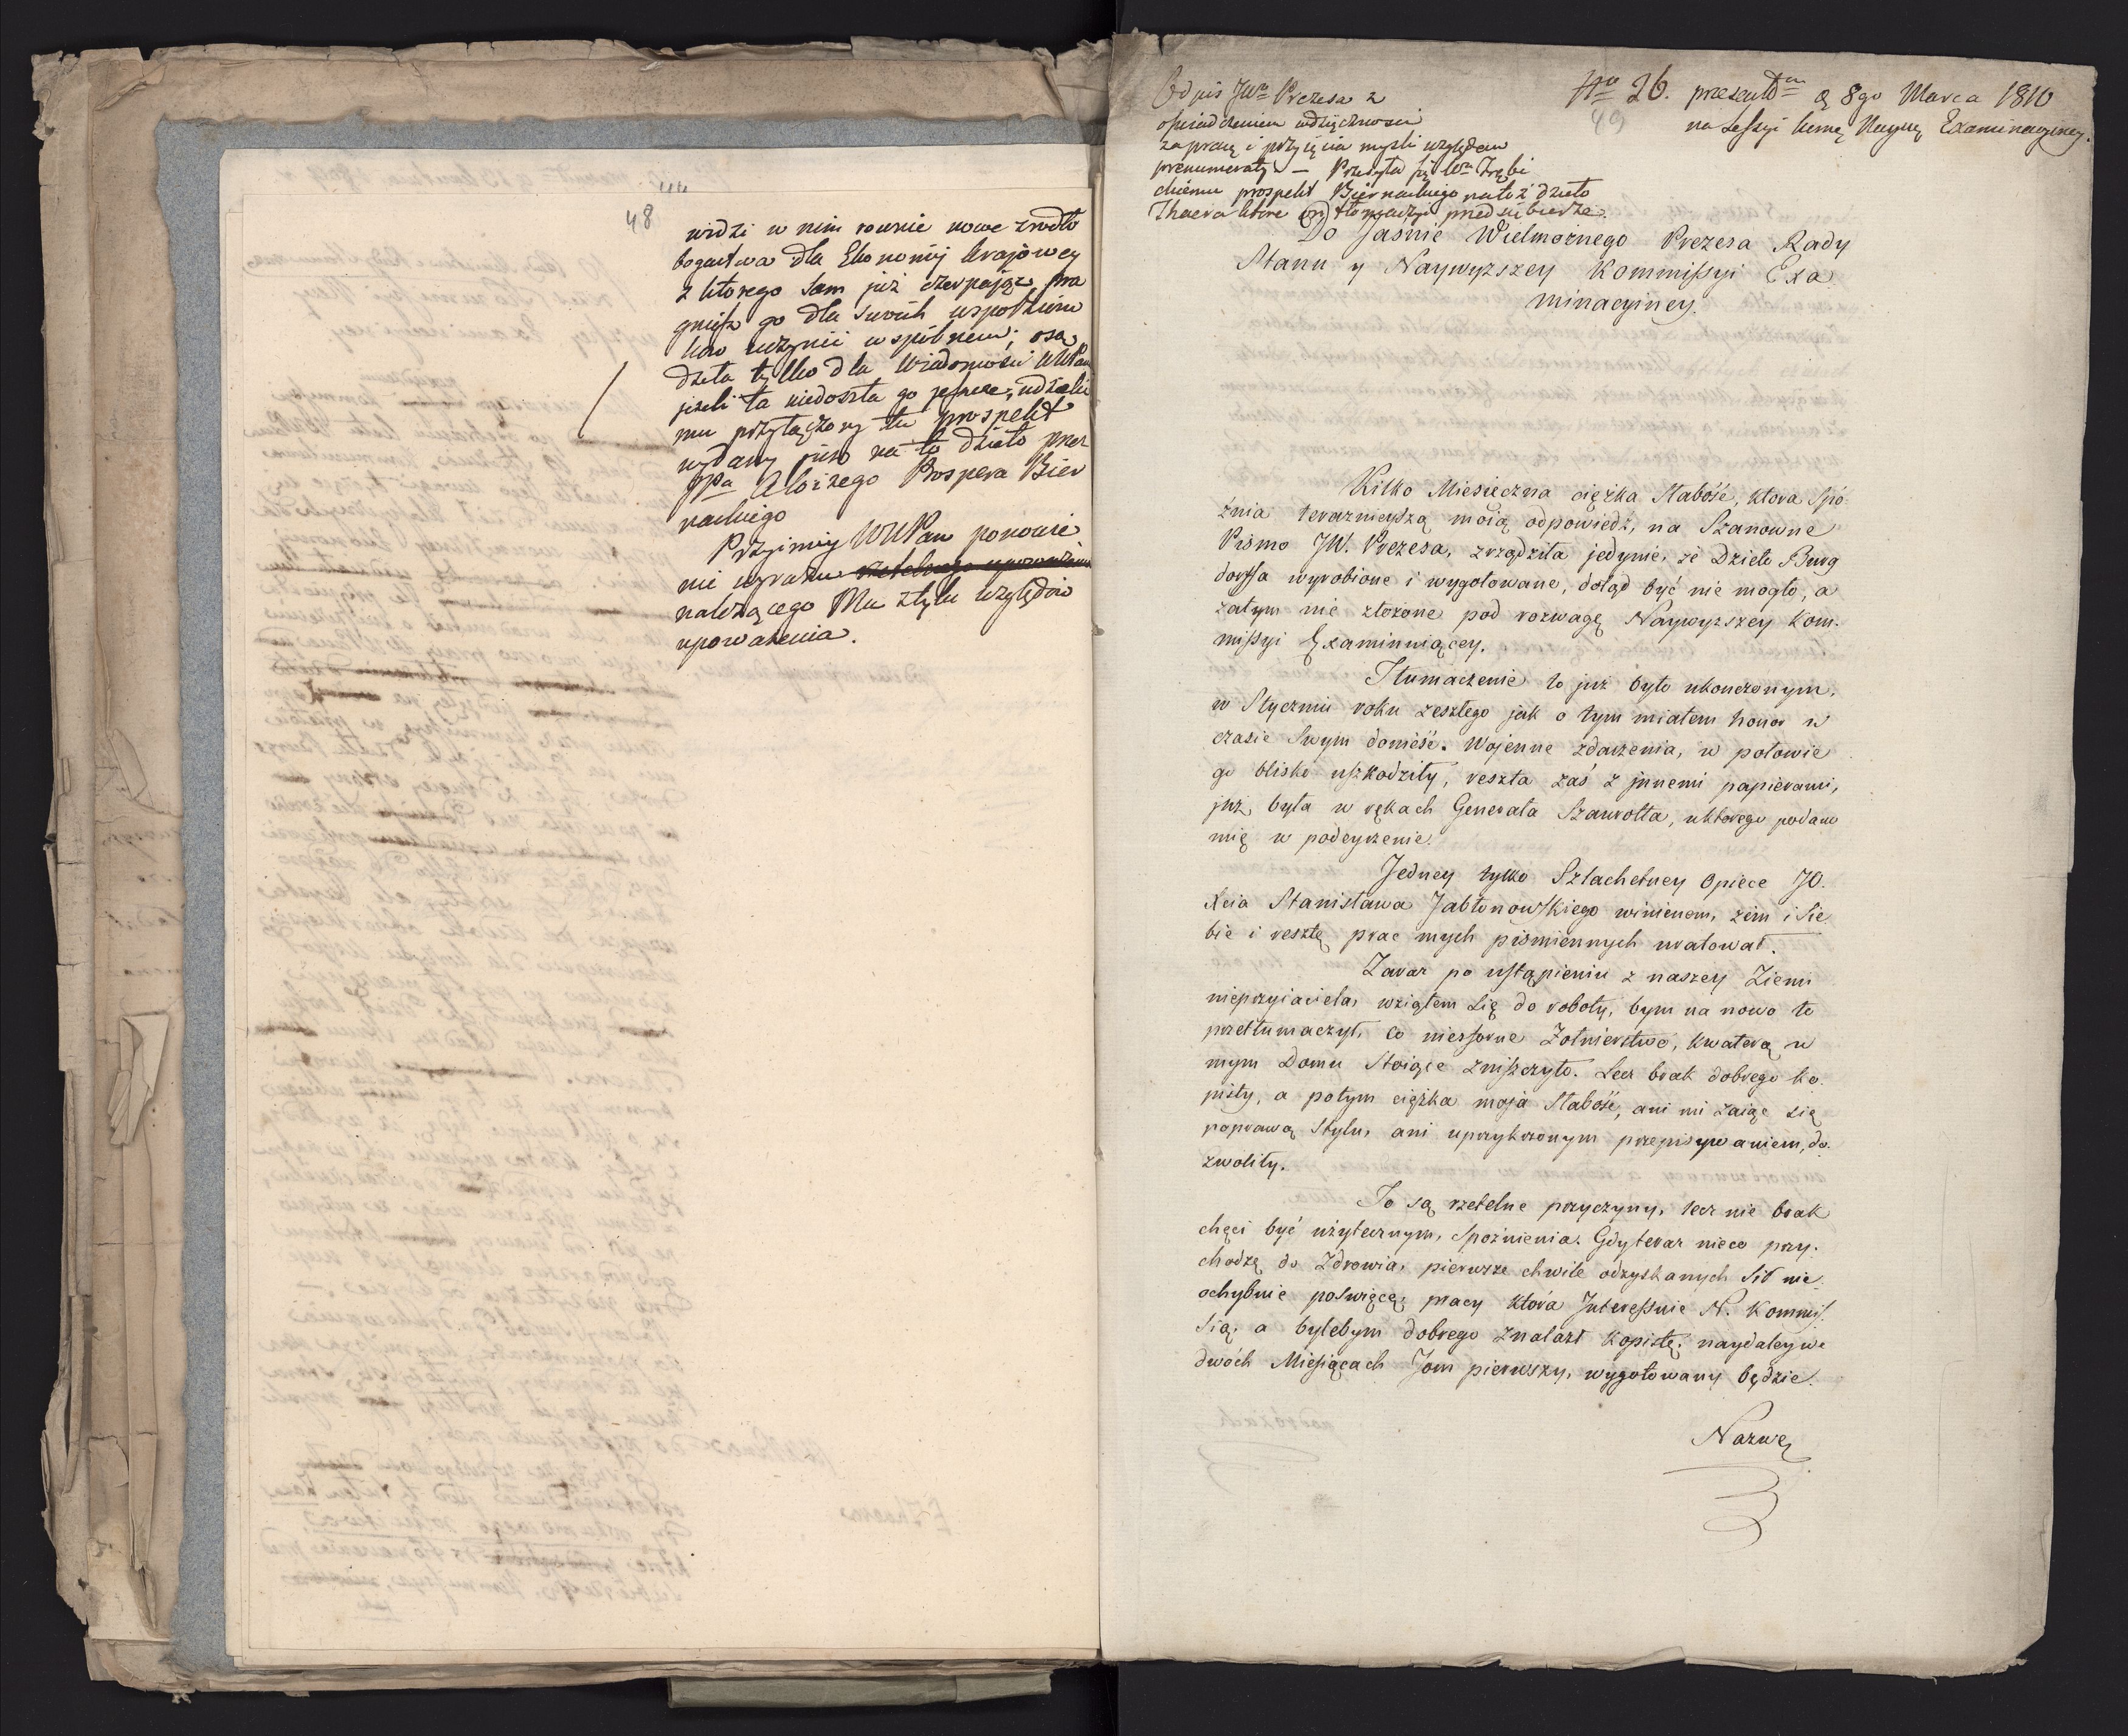 48
widzi w nim rownie nowe zrodło
bogactwa dla Ekonomij krajowey
z ktorego sam już czerpaiąc pra
gnięsz go dla swoich wspołziom
kow uczynić wspólnem; osą
dziła tylko dla wiadomości WWPan
jeżeli ta niedoszła go jeszcze; udzielić
mu przyłączony tu prospekt
wydany już na to dzieło przez
JPa Aloizego Prospera Bier
nackiego
Przyimiy WWPan ponowie
nie wyrazu rzetelnego upoważenia
należącego Mu z tylu względów
upoważenia.
Odpis JWo Prezesa z
oświadczeniem wdzięczności
za pracę i przyięcia myśli względem
prenumeraty — Przesyła się Wu Trębi
ckiemu prospekt Biernackiego na toż dzieło
Thaera ktore on tłomaczyć przedsiębierze.
Nro 26. presentdm d 8go Marca 1810
na Sessyi kmę Naywę Examinacyiney.
49
Do Jaśnie Wielmożnego Prezesa Rady
Stanu y Naywyzszey Kommissyi Exa
minacyiney.
Kilko Miesięczna cięzka Słabość, ktora Spó-
żnia terazniejszą moią odpowiedź, na Szanowne
Pismo JW. Prezesa, zrządziła jedynie, że Dzieło Burg
dorffa wyrobione i wygotowane, dotąd być nie mogło, a
zatym nie złożone pod rozwagę Naywyzszey Kom-
missyi Examinuiącey.
Tłumaczenie to już było ukonczonym,
w Styczniu roku zeszłego jak o tym miałem honor w
czasie Swym donieść. Wojenne zdarzenia, w połowie
go blisko uszkodziły, reszta zaś z innemi papierami,
już była w rękach Generała Szaurotta, u ktorego podano
mię w podeyrzenie.
Jedney tylko Szlachetney Opiece JO.
Xcia Stanisława Jabłonowskiego winienem, żem i Sie
bie i resztę prac mych pismiennych uratował.
Zaraz po ustąpieniu z naszey Ziemi
nieprzyiaciela, wziąłem Się do roboty, bym na nowo to
przetłumaczył, co niesforne Żołnierstwo, kwaterą w
mym Domu Stoiące zniszczyło. Lecz brak dobrego ko-
pisty, a potym cięzka moja Słabość, ani mi zaiąć się
poprawą Stylu, ani uprzykrzonym przepisywaniem, do-
zwoliły.
To są rzetelne przyczyny, lecz nie brak
chęci być użytecznym, Spoźnienia. Gdy teraz nieco przy-
chodzę do Zdrowia, pierwsze chwile odzyskanych Sił nie-
ochybnie poświęcę; pracy ktora Interessuie N. Kommis-
Sią, a bylebym dobrego znalazł kopistę; naydaley we
dwóch Miesiącach Tom pierwszy, wygotowany będzie.
Nazwę